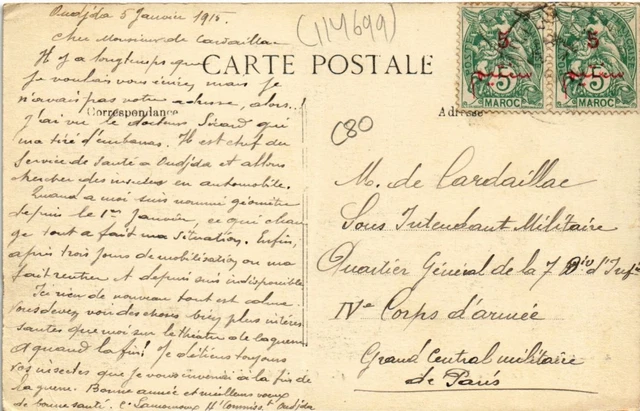 Oudjda 5 Janvier 1915.
(114699)
Cher Monsieur de Cardaillac
Il y a longtemps que
je voulais vous écrire, mais je
n'avais pas votre adresse, alors..!
J'ai vu le docteur Sicard qui
ma tiré d'embarras. Il est chef du
Service de Santé a Oudjda et allons
chercher des insectes en automobile.
Quand a moi suis nommé géomètre
depuis le 1er Janvier, ce qui chan
ge tout a fait ma situation. Enfin,
après trois jours de mobilisation on ma
fait rentrer et depuis suis indisponible
Ici rien de nouveau tout est calme
Vous devez voir des choses bien plus intéres
santes que moi sur le théatre de la guerre
A quand la fin! Je détiens toujours
vos insectes que je vous enverrai à la fin de
la guerre. Bonne année et meilleurs voeux
de bonne santé. Oudjda
CARTE POSTALE
Correspondance
Adresse
C80
5
5
5
5
MAROC
MAROC
M. de Cardaillac
Sous Intendant Militaire
Quartier Général de la 7 Div d'Infie
IVe Corps d'armée
Grand Central militaire
de Paris